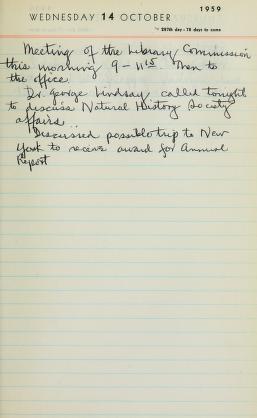 1959
WEDNESDAY 14 OCTOBER
287th day - 78 days to come
Meeting of the Library Commission
this morning 9 - 11:15 Then to
the office.
Dr. George Lindsay called tonight
to discuss Natural History Society
affairs.
Discussed possible trip to New
York to receive award for Annual
Report